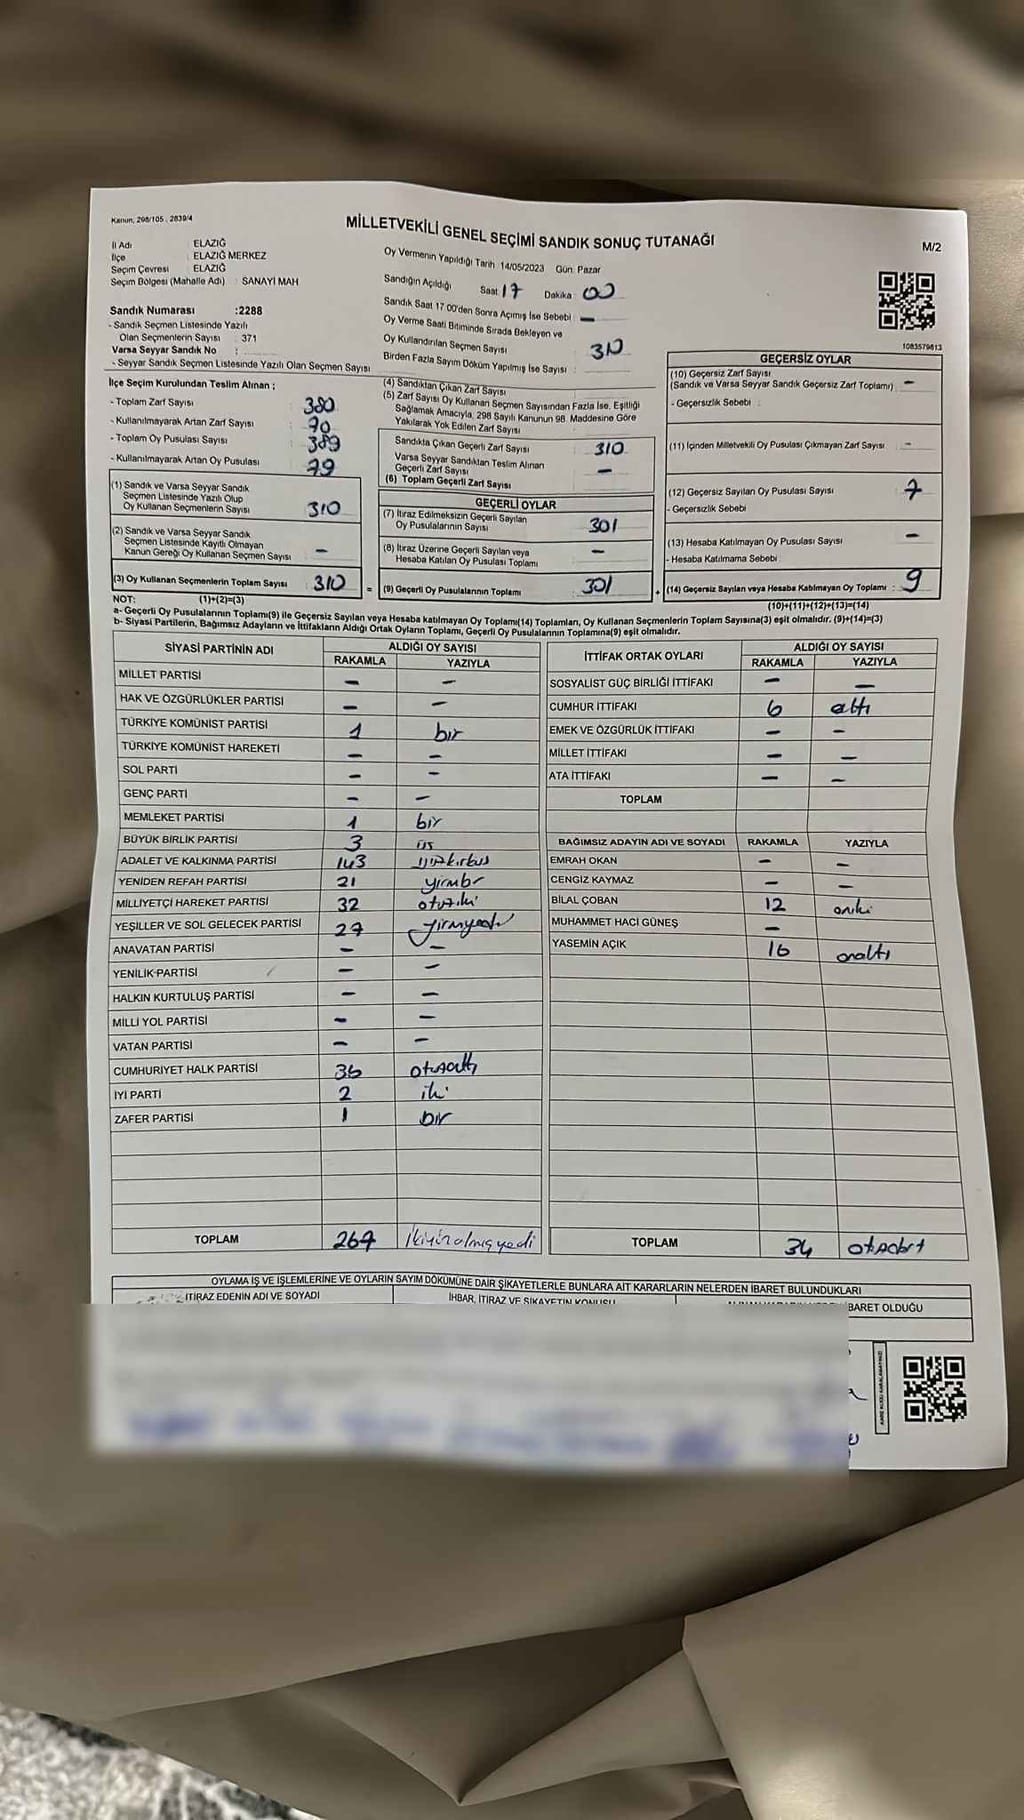 Kanun, 298/105 , 2839/4
MİLLETVEKİLİ GENEL SEÇİMİ SANDIK SONUÇ TUTANAĞI
M/2
İl Adı : ELAZIĞ
İlçe : ELAZIĞ MERKEZ
Seçim Çevresi : ELAZIĞ
Seçim Bölgesi (Mahalle Adı) : SANAYİ MAH
Oy Vermenin Yapıldığı Tarih 14/05/2023 Gün: Pazar
Sandığın Açıldığı Saat: 17 Dakika: 00
Sandık Saat 17 00'den Sonra Açımış İse Sebebi : -
Oy Verme Saati Bitiminde Sırada Bekleyen ve
Oy Kullandırılan Seçmen Sayısı : 310
Birden Fazla Sayım Döküm Yapılmış İse Sayısı :
Sandık Numarası :2288
- Sandık Seçmen Listesinde Yazılı
Olan Seçmenlerin Sayısı : 371
Varsa Seyyar Sandık No :
- Seyyar Sandık Seçmen Listesinde Yazılı Olan Seçmen Sayısı
1083579813
İlçe Seçim Kurulundan Teslim Alınan ;
- Toplam Zarf Sayısı : 380
- Kullanılmayarak Artan Zarf Sayısı : 70
- Toplam Oy Pusulası Sayısı : 389
- Kullanılmayarak Artan Oy Pusulası : 79
(1) Sandık ve Varsa Seyyar Sandık
Seçmen Listesinde Yazılı Olup
Oy Kullanan Seçmenlerin Sayısı : 310
(2) Sandık ve Varsa Seyyar Sandık
Seçmen Listesinde Kayıtlı Olmayan
Kanun Gereği Oy Kullanan Seçmen Sayısı : -
(3) Oy Kullanan Seçmenlerin Toplam Sayısı : 310 =
NOT: (1)+(2)=(3)
(4) Sandıktan Çıkan Zarf Sayısı
(5) Zarf Sayısı Oy Kullanan Seçmen Sayısından Fazla İse, Eşitliği
Sağlamak Amacıyla, 298 Sayılı Kanunun 98. Maddesine Göre
Yakılarak Yok Edilen Zarf Sayısı :
Sandıkta Çıkan Geçerli Zarf Sayısı : 310
Varsa Seyyar Sandıktan Teslim Alınan
Geçerli Zarf Sayısı : -
(6) Toplam Geçerli Zarf Sayısı :
GEÇERLİ OYLAR
(7) İtiraz Edilmeksizin Geçerli Sayılan
Oy Pusulalarının Sayısı : 301
(8) İtiraz Üzerine Geçerli Sayılan veya
Hesaba Katılan Oy Pusulası Toplamı : -
(9) Geçerli Oy Pusulalarının Toplamı : 301 +
GEÇERSİZ OYLAR
(10) Geçersiz Zarf Sayısı
(Sandık ve Varsa Seyyar Sandık Geçersiz Zarf Toplamı) : -
- Geçersizlik Sebebi :
(11) İçinden Milletvekili Oy Pusulası Çıkmayan Zarf Sayısı : -
(12) Geçersiz Sayılan Oy Pusulası Sayısı : 7
- Geçersizlik Sebebi
(13) Hesaba Katılmayan Oy Pusulası Sayısı : -
- Hesaba Katılmama Sebebi :
(14) Geçersiz Sayılan veya Hesaba Katılmayan Oy Toplamı : 9
(10)+(11)+(12)+(13)=(14)
a- Geçerli Oy Pusulalarının Toplamı(9) ile Geçersiz Sayılan veya Hesaba katılmayan Oy Toplamı(14) Toplamları, Oy Kullanan Seçmenlerin Toplam Sayısına(3) eşit olmalıdır. (9)+(14)=(3)
b- Siyasi Partilerin, Bağımsız Adayların ve İttifakların Aldığı Ortak Oyların Toplamı, Geçerli Oy Pusulalarının Toplamına(9) eşit olmalıdır.
SİYASİ PARTİNİN ADI ALDIĞI OY SAYISI
RAKAMLA YAZIYLA
MİLLET PARTİSİ - -
HAK VE ÖZGÜRLÜKLER PARTİSİ - -
TÜRKİYE KOMÜNİST PARTİSİ 1 bir
TÜRKİYE KOMÜNİST HAREKETİ - -
SOL PARTİ - -
GENÇ PARTİ - -
MEMLEKET PARTİSİ 1 bir
BÜYÜK BİRLİK PARTİSİ 3 üs
ADALET VE KALKINMA PARTİSİ 143
YENİDEN REFAH PARTİSİ 21 yirmbr
MİLLİYETÇİ HAREKET PARTİSİ 32 otuziki
YEŞİLLER VE SOL GELECEK PARTİSİ 27 yirmiyedi
ANAVATAN PARTİSİ - -
YENİLİK PARTİSİ - -
HALKIN KURTULUŞ PARTİSİ - -
MİLLİ YOL PARTİSİ - -
VATAN PARTİSİ - -
CUMHURİYET HALK PARTİSİ 36 otuzaltı
İYİ PARTİ 2 iki
ZAFER PARTİSİ 1 bir
TOPLAM 267 ikiyüzalmışyedi
İTTİFAK ORTAK OYLARI ALDIĞI OY SAYISI
RAKAMLA YAZIYLA
SOSYALİST GÜÇ BİRLİĞİ İTTİFAKI - -
CUMHUR İTTİFAKI 6 altı
EMEK VE ÖZGÜRLÜK İTTİFAKI - -
MİLLET İTTİFAKI - -
ATA İTTİFAKI - -
TOPLAM
BAĞIMSIZ ADAYIN ADI VE SOYADI RAKAMLA YAZIYLA
EMRAH OKAN - -
CENGİZ KAYMAZ - -
BİLAL ÇOBAN 12 oniki
MUHAMMET HACİ GÜNEŞ -
YASEMİN AÇIK 16 onaltı
TOPLAM 34 otuzdört
OYLAMA İŞ VE İŞLEMLERİNE VE OYLARIN SAYIM DÖKÜMÜNE DAİR ŞİKAYETLERLE BUNLARA AİT KARARLARIN NELERDEN İBARET BULUNDUKLARI
İTİRAZ EDENİN ADI VE SOYADI
İHBAR, İTİRAZ VE ŞİKAYETİN KONUSU
İBARET OLDUĞU